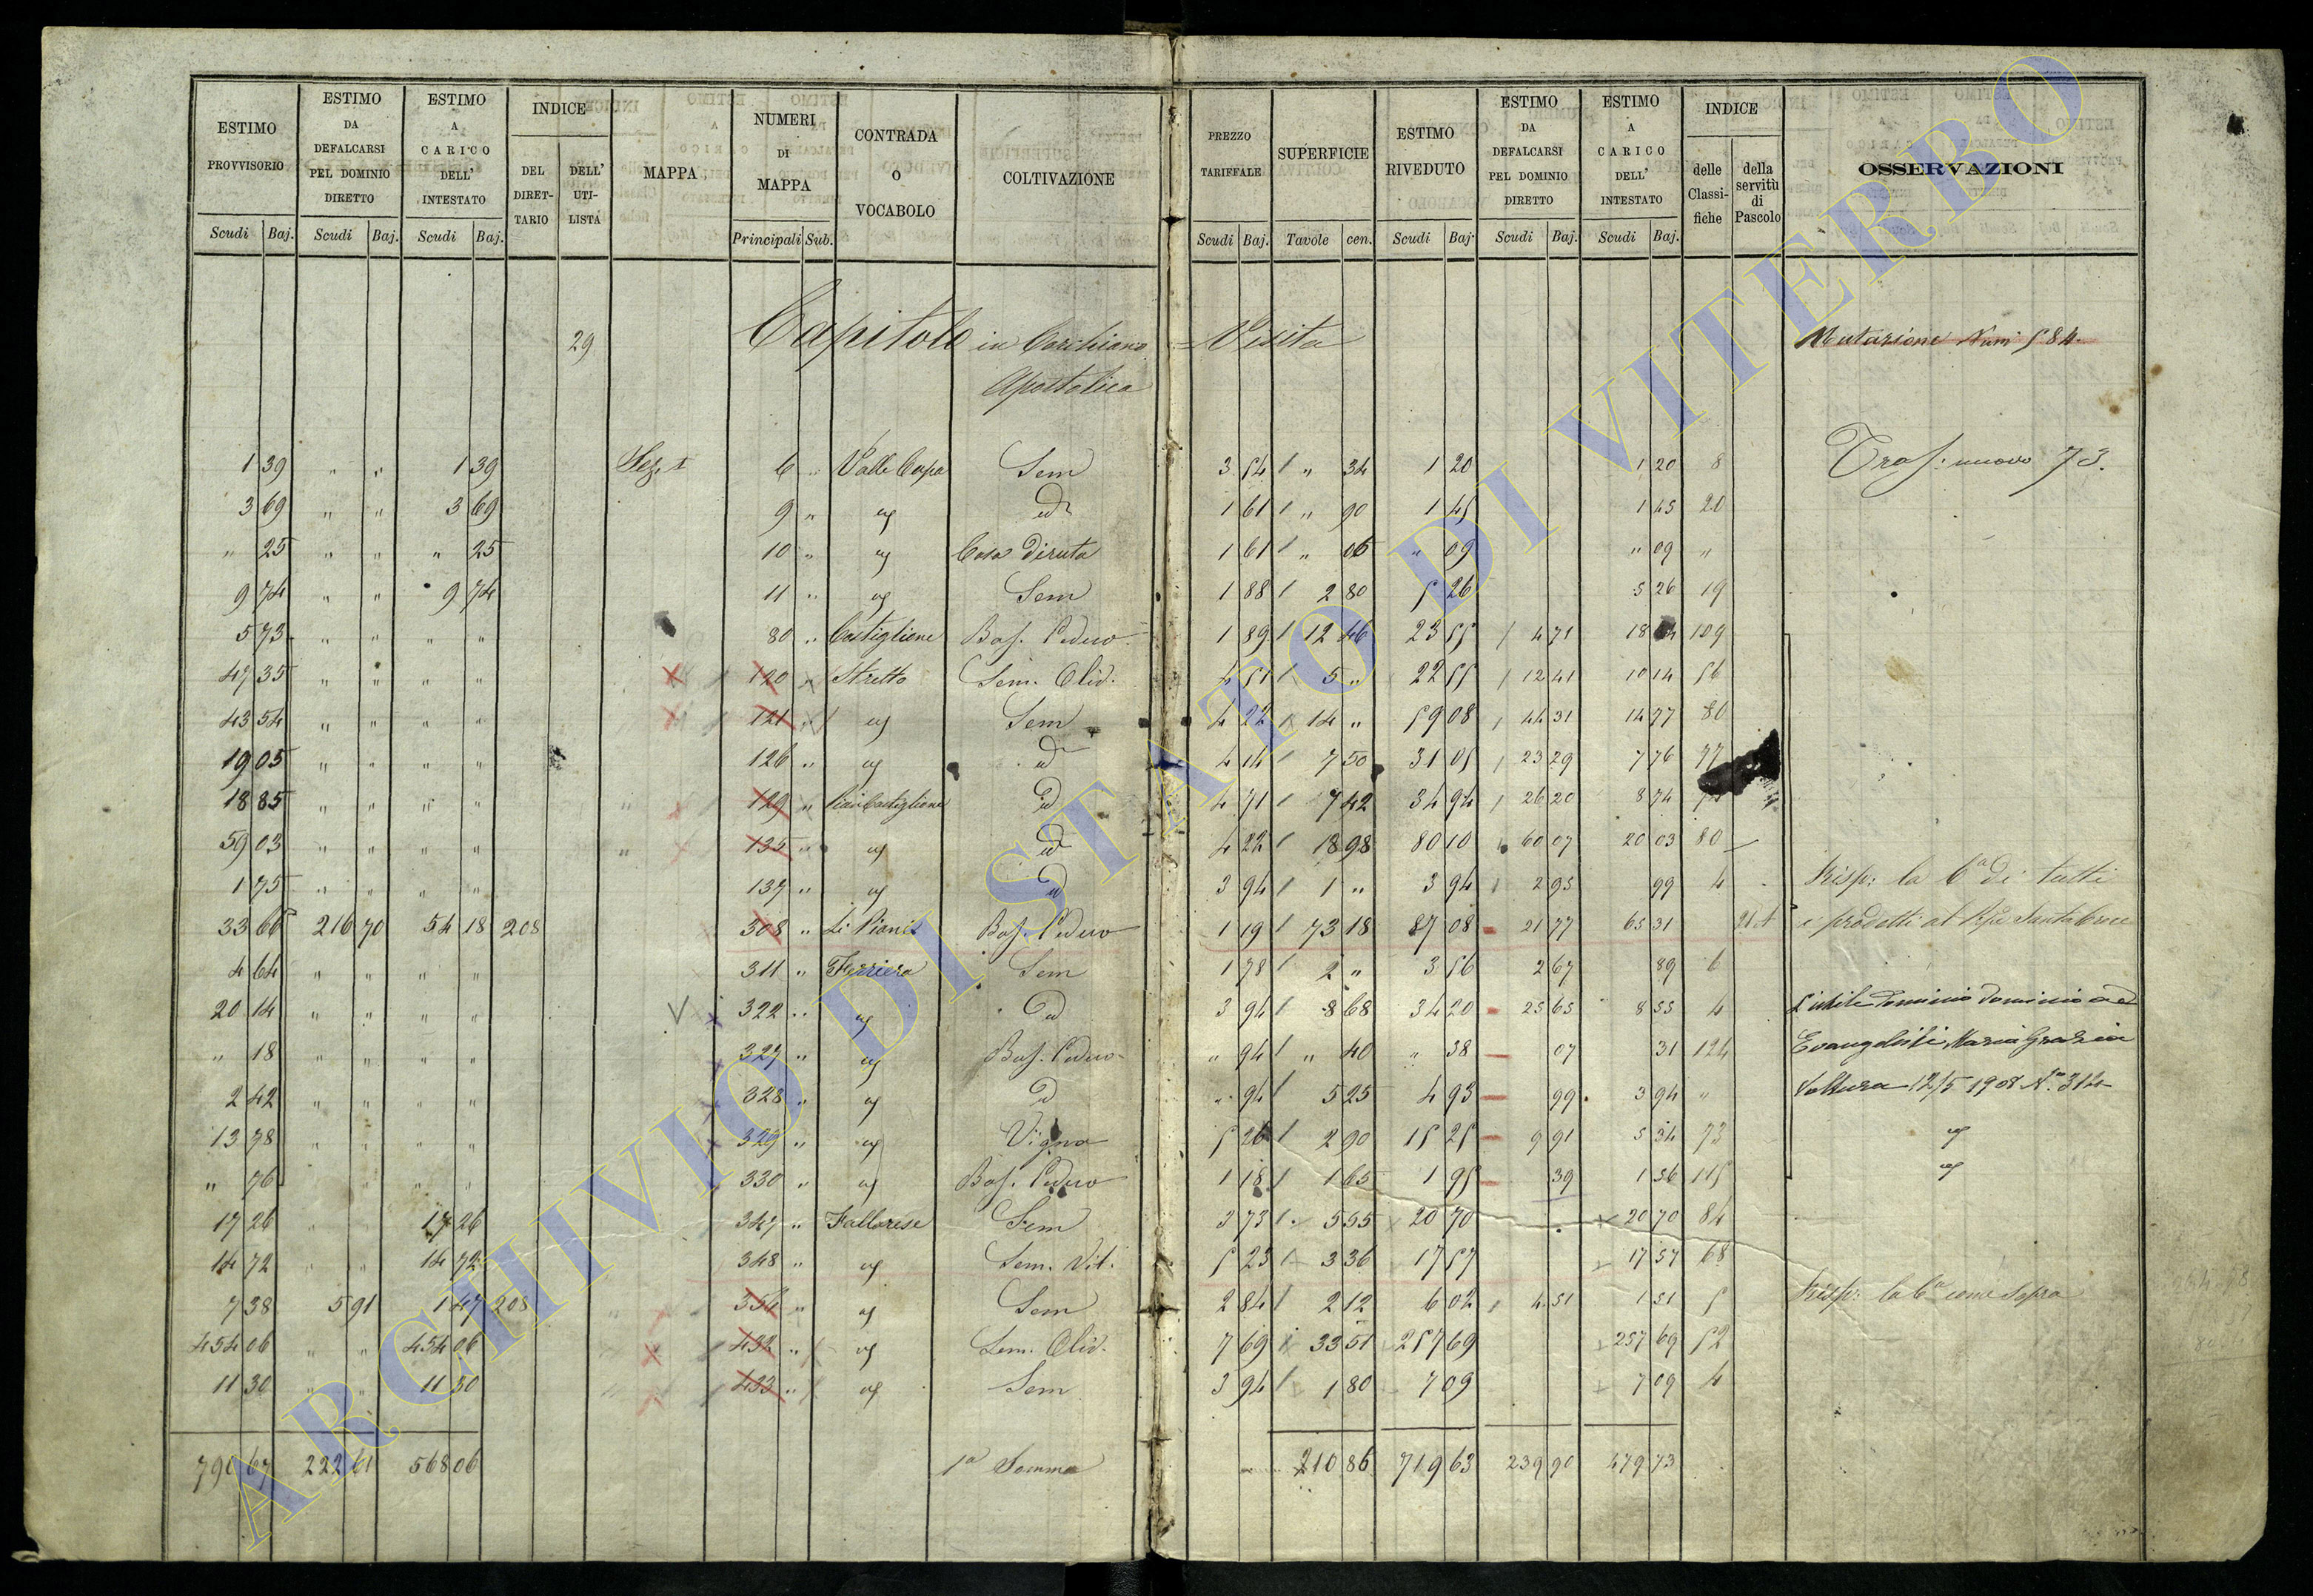 ESTIMO PROVVISORIO
ESTIMO DA DEFALCARSI PEL DOMINIO DIRETTO
ESTIMO A CARICO DELL' INTESTATO
INDICE
DEL DIRETTARIO
DELL' UTILISTA
MAPPA
NUMERI DI MAPPA
CONTRADA O VOCABOLO
COLTIVAZIONE
PREZZO TARIFFALE
SUPERFICIE
ESTIMO RIVEDUTO
ESTIMO DA DEFALCARSI PEL DOMINIO DIRETTO
ESTIMO A CARICO DELL' INTESTATO
INDICE
delle Classifiche
della servitù di Pascolo
OSSERVAZIONI
Scudi Baj. Scudi Baj. Scudi Baj. Principali Sub. Scudi Baj. Tavole cen. Scudi Baj. Scudi Baj. Scudi Baj.
29 Capitolo in Corchiano = Visita Mutazione Num 584
Apostolica
Tras: nuovo 73.
1 39 " " 1 39 Sez. I 6 " Valle Cupa Sem 3 54 " 34 1 20 1 20 8
3 69 " " 3 69 9 " " id 1 61 " 90 1 45 1 45 20
" 25 " " " 25 10 " Casa diruta 1 61 " 06 " 09 " 09 "
9 74 " " 9 74 11 " Sem 1 88 2 80 5 26 5 26 19
5 73 " " " " 80 " Castiglione Bos. Ceduo 1 89 12 46 23 55 4 71 18 84 109
47 35 " " " " 120 Stretto Sem. Oliv. 4 51 5 " 22 55 12 41 10 14 56
43 54 " " " " 121 Sem 4 22 14 " 59 08 44 31 14 77 80
19 05 " " " " 126 " id 4 14 7 50 31 05 23 29 7 76 77
18 85 " " " " 129 " Pian Castiglione id 4 71 7 42 34 94 26 20 8 74
59 03 " " " " 135 " id 4 22 18 98 80 10 60 07 20 03 80
1 75 " " " " 137 " id 3 94 1 " 3 94 2 95 99 4
33 66 216 70 54 18 208 308 " Li Pianei Bos. Ceduo 1 19 73 18 87 08 21 77 65 31
4 64 " " " " 311 " Ferriera Sem 1 78 2 " 3 56 2 67 89 6
20 14 " " " " 322 " id 3 94 8 68 34 20 25 65 8 55 4
" 18 " " " " 327 " Bos. Ceduo " 94 " 40 " 38 07 31 124
2 42 " " " " 328 " id " 94 5 25 4 93 99 3 94 "
13 78 " " " " 329 " Vigna 5 26 2 90 15 25 9 91 5 34 73
" 76 " " " " 330 " Bos. Ceduo 1 18 1 65 1 95 39 1 56 115
17 26 17 26 347 " Fallarese Sem 3 73 5 55 20 70 20 70 84
14 72 14 72 348 " Sem. Vit. 5 23 3 36 17 57 17 57 68
7 38 5 91 1 47 208 354 " Sem 2 84 2 12 6 02 4 51 1 51 5
454 06 " " 454 06 432 " Sem. Oliv. 7 69 33 51 257 69 257 69 52
11 30 " " 11 30 433 " Sem 3 94 1 80 7 09 7 09 4
Risp: la 6a di tutti
i prodotti al Santa Croce
L'utile dominio
Evangelisti Maria Grazia
Voltura 12/5 1908 No. 314
Risp: la 6a come sopra
790 67 222 61 568 06 1a Somma 210 86 719 63 239 90 479 73
ARCHIVIO DI STATO DI VITERBO